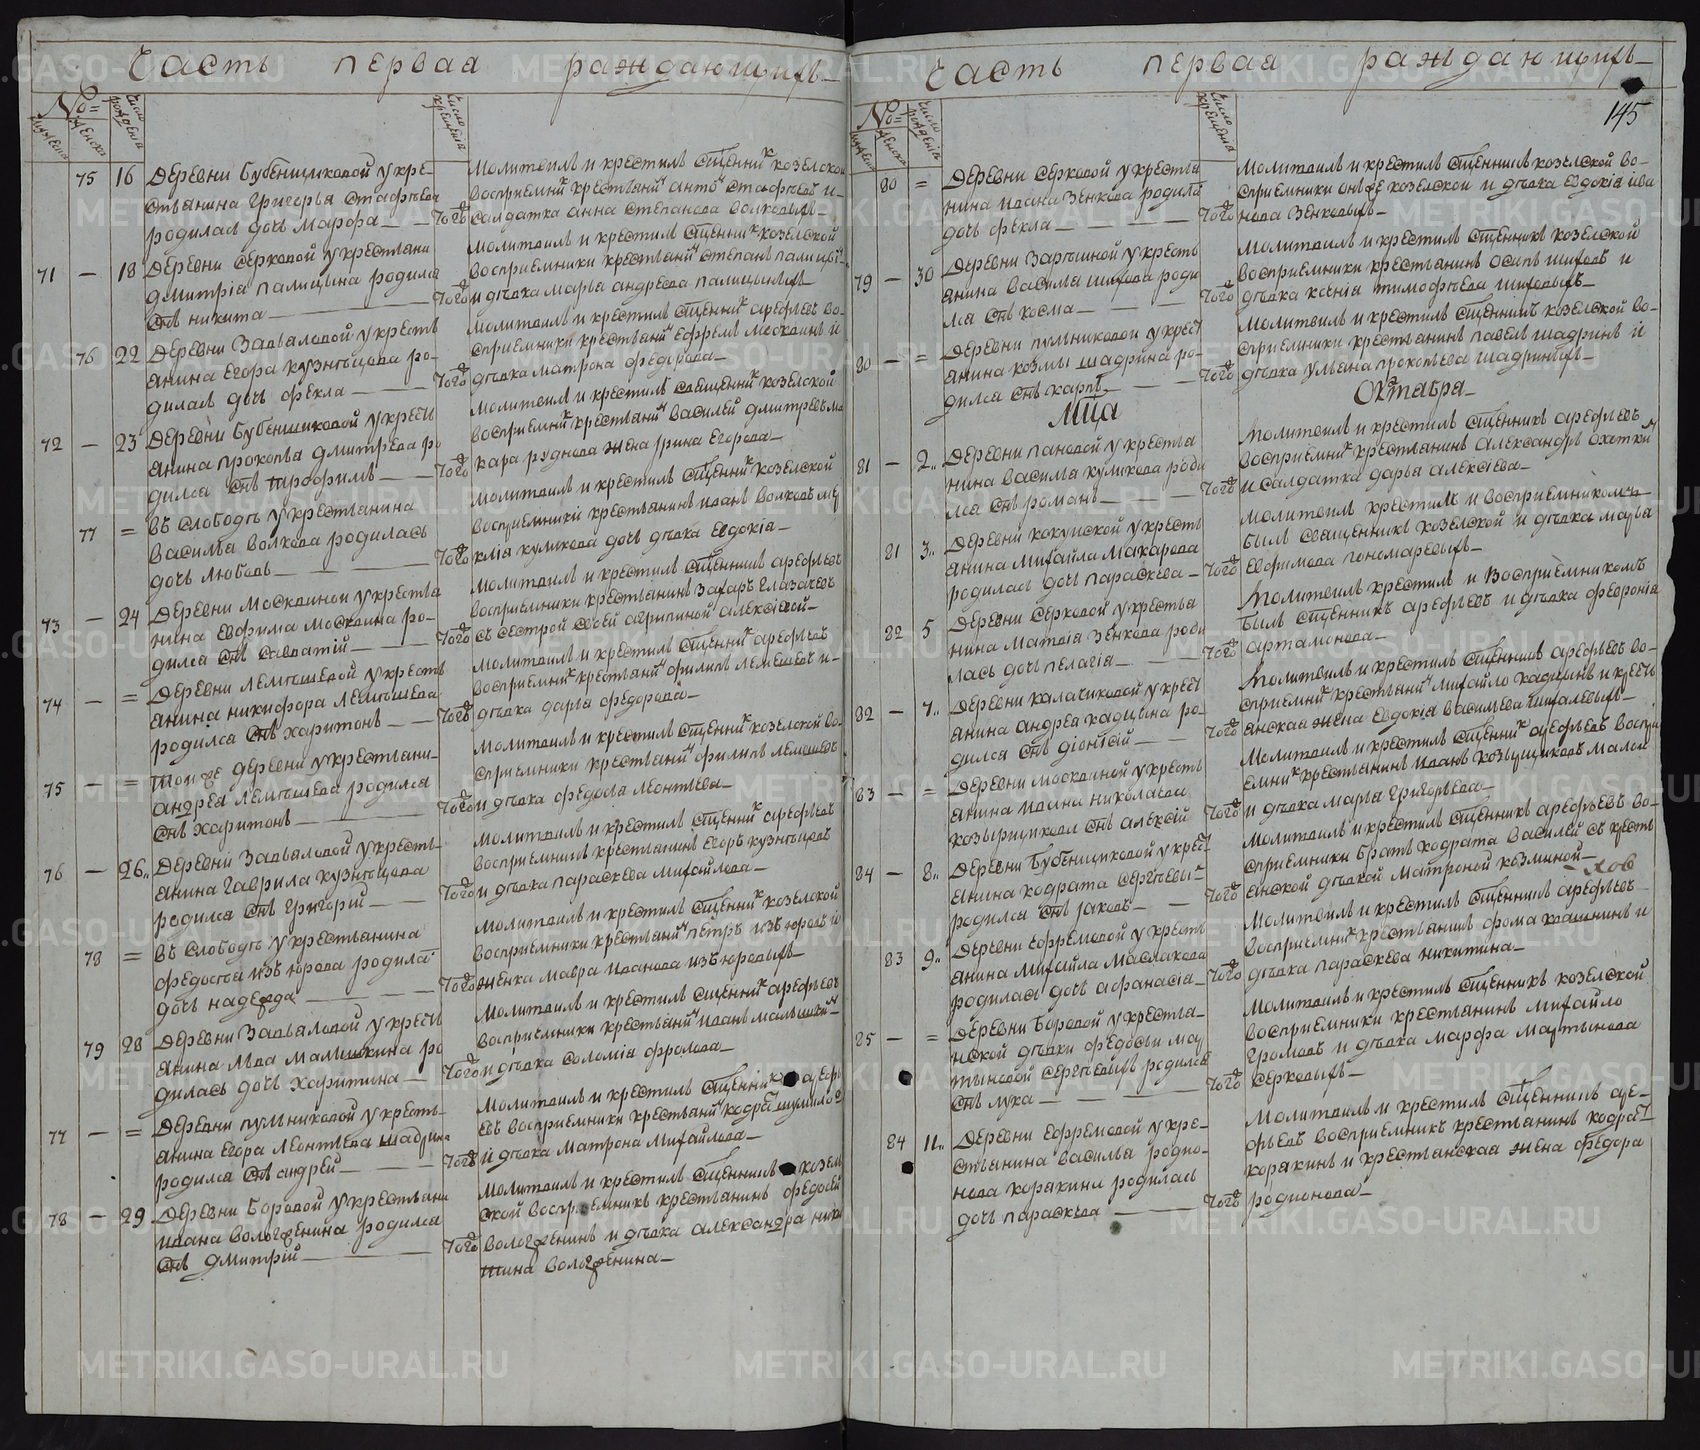 Часть первая раждающихъ
No=
мужеска
женска
число рождения
число крещения
75 16 деревни Бубенщиковой у кре-
стьянина Григорья Стафѣева
родилась дочь Марфа
того
Молитвилъ и крестилъ сщенник козелской
восприемни крестьяни антō Стафѣевъ и
салдатка анна Степанова волковыхъ
71 18 деревни Серковой у крестьяни
дмитрія палицына родился
снъ никита
того
Молитвилъ и крестилъ сщенник козелской
восприемники крестьяни Степанъ палицы
и дѣвка марья андрѣева палицыныхъ
76 22 деревни Завьяловой у кресть
янина Егора кузнѣцова ро-
дилась дочь фекла
того
Молитвилъ и крестилъ сщенник арефьевъ во-
сприемники крестьяни Ефремъ москвинъ и
дѣвка матрона федорова
72 23 деревни Бубенщиковой у кресть
янина прокопья дмитрева ро
дился снъ трофимъ
того
Молитвилъ и крестилъ священник козелской
восприемник крестьяни василей дмитревъ ма
кара руднова жена ирина Егорова
77 = въ слободѣ у крестьянина
василья волкова родилась
дочь любовь
того
Молитвилъ и крестилъ сщенник козелской
восприемники крестьянинъ иванъ волковъ
кліа куликова дочь дѣвка Евдокіа
73 24 деревни Москвиной у крестья
нина Евфима москвина ро-
дился снъ савватій
того
Молитвилъ и крестилъ сщенникъ арефьевъ
восприемники крестьянинъ Захаръ глазачевъ
съ сестрой своей агрипиной алексіевой
74 = деревни лемѣшевой у кресть
янина никифора лемѣшева
родился снъ харитонъ
того
Молитвилъ и крестилъ сщенник арефьевъ
восприемник крестьяни филипъ лемешевъ и
дѣвка дарья федорова
75 = той же деревни у крестьяни-
андрея лемѣшева родился
снъ харитонъ
того
Молитвилъ и крестилъ сщенник козелской во-
сприемники крестьяни филипъ лемешевъ
и дѣвка федосья леонтьева
76 26 деревни Завьяловой у кресть
янина гаврила кузнѣцова
родился снъ григорий
того
Молитвилъ и крестилъ сщенник арефьевъ
восприемникъ крестьянинъ Егоръ кузнѣцовъ
и дѣвка параскева михайлова
78 = въ слободѣ у крестьянина
федосѣя изъюрова родила
дочь надежда
того
Молитвилъ и крестилъ сщенник козелской
восприемники крестьяни петръ изъюровъ и
женка мавра иванова изъюровыхъ
79 28 деревни Завьяловой у кресть
янина лва малышкина ро
дилась дочь харитина
того
Молитвилъ и крестилъ сщенник арефьевъ
восприемники крестьяни иванъ малышкин
и дѣвка соломіа фролова
77 = деревни пульниковой у кресть
янина Егора леонтьева шадрин
родился снъ андрей
того
Молитвилъ и крестилъ сщенник арефь
евъ восприемники крестьяни кодра шумило
и дѣвка матрона михайлова
78 29 деревни Боровой у крестьяни
ивана вологженина родился
снъ дмитрій
того
Молитвилъ и крестилъ сщенникъ козел
ской восприемникъ крестьянинъ федосѣй
вологженинъ и дѣвка александра ники
тина вологженина
Часть первая раждающихъ
145
No=
мужеска
женска
число рожденія
число крещения
80 = деревни Серковой у крестья
нина ивана Зенкова родила
дочь фекла
того
Молитвилъ и крестилъ сщенникъ козелской во-
сприемники онъ же козелской и дѣвка Евдокіа ива
нова Зенковыхъ
79 30 деревни Заршиной у кресть
янина василья шихова роди
лся снъ косма
того
Молитвилъ и крестилъ сщенникъ козелской
восприемники крестьянинъ осипъ шиховъ и
дѣвка ксенія тимофѣева шиховыхъ
80 = деревни пульниковой у крест
янина козмы шадрина ро-
дился снъ карпъ
того
Молитвилъ и крестилъ сщенникъ козелской во-
сприемники крестьянинъ павелъ шадринъ и
дѣвка ульяна прокопьева шадриныхъ
Мца
Октября
81 2 деревни пановой у крестья
нина василья куликова роди
лся снъ романъ
того
Молитвилъ и крестилъ сщенникъ арефьевъ
восприемник крестьянинъ александръ охатки
и салдатка дарья алексіева
81 3 деревни кокуйской у кресть
янина михайла макарова
родилась дочь параскева
того
Молитвилъ крестилъ и восприемником
былъ священникъ козелской и дѣвка марья
Евфимова пономаревыхъ
82 5 деревни Серковой у крестья
нина матвіа Зенкова роди
лась дочь пелагія
того
Молитвилъ крестилъ и восприемникомъ
былъ сщенникъ арефьевъ и дѣвка февроніа
артамонова
82 7 деревни калачиковой у крест
янина андрея кадцына ро-
дился снъ діонісій
того
Молитвилъ и крестилъ сщенникъ арефьевъ во-
сприемник крестьяни михайло кадцынъ и кресть
янская жена Евдокіа васильева
83 = деревни москвиной у кресть
янина ивана николаева
козырщикова снъ алексій
того
Молитвилъ и крестилъ сщенник арефьевъ воспри
емник крестьянинъ иванъ козырщиковъ малой
и дѣвка марья григорьева
84 8 деревни Бубенщиковой у крест
янина кодрата сергѣевы
родился снъ іаковъ
того
Молитвилъ и крестилъ сщенникъ арефьевъ во-
сприемники братъ кодрата василей съ кресть
янской дѣвкой матроной козминой
83 9 деревни Ефремовой у кресть
янина михайла маслакова
родилась дочь афанасіа
того
Молитвилъ и крестилъ сщенникъ арефьев
восприемник крестьянинъ фома квашнинъ и
дѣвка параскева никитина
85 = деревни Боровой у крестья-
нской дѣвки федосьи мар
тыновой сергѣевыхъ родился
снъ лука
того
Молитвилъ и крестилъ сщенникъ козелской
восприемники крестьянинъ михайло
громовъ и дѣвка марфа мартынова
серковыхъ
84 11 деревни Ефремовой у кре-
стьянина василья родио-
нова корякина родилась
дочь параскева
того
Молитвилъ и крестилъ сщенникъ аре-
фьевъ восприемникъ крестьянинъ кодрат
корякинъ и крестьянская жена федора
родионова